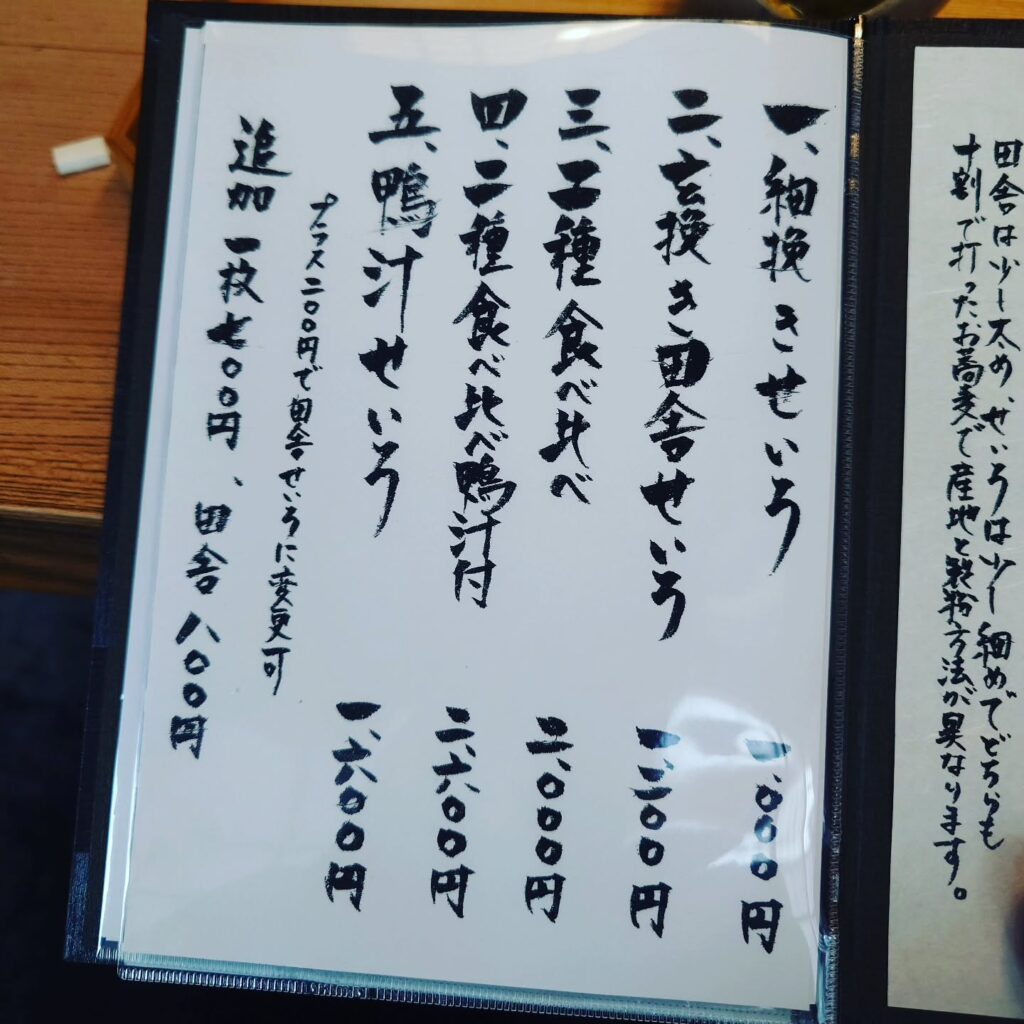 田舎は少し太め、せいろは少し細めでどちらも
十割で打ったお蕎麦で産地と製粉方法が異なります。
一、細挽きせいろ 一、〇〇〇円
二、玄挽き田舎せいろ 一、二〇〇円
三、二種食べ比べ 二、〇〇〇円
四、二種食べ比べ鴨汁付 二、六〇〇円
五、鴨汁せいろ 一、六〇〇円
プラス二〇〇円で田舎せいろに変更可
追加 一枚七〇〇円、田舎八〇〇円